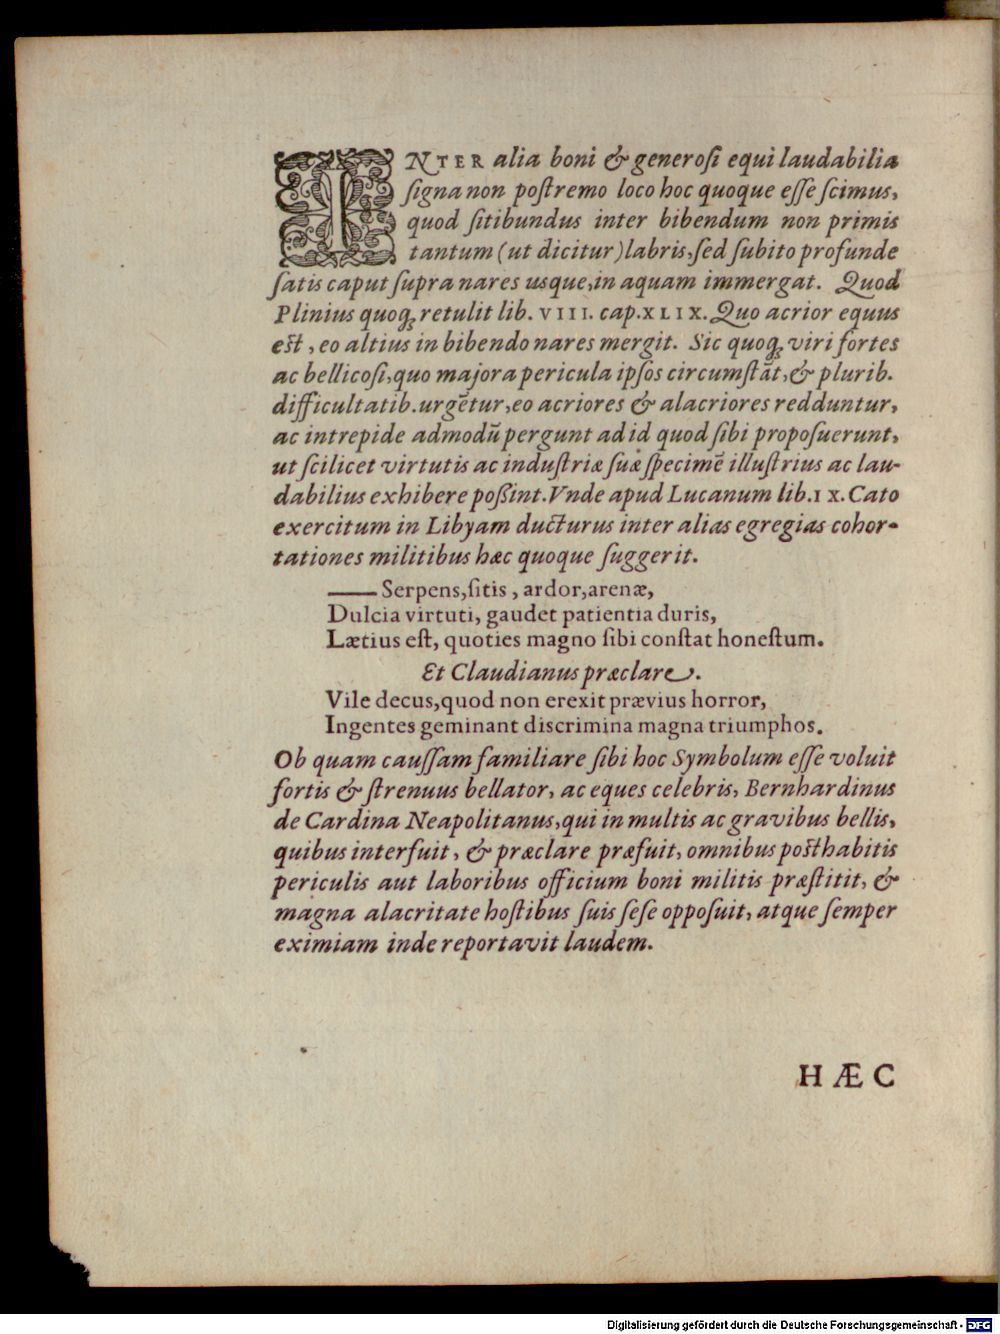 INTER alia boni & generoſi equi laudabilia
ſigna non poſtremo loco hoc quoque eſſe ſcimus,
quod ſitibundus inter bibendum non primis
tantum (ut dicitur) labris, ſed ſubito profunde
ſatis caput ſupra nares usque, in aquam immergat. Quod
Plinius quoq; retulit lib. VIII. cap. XLIX. Quo acrior equus
eſt, eo altius in bibendo nares mergit. Sic quoq; viri fortes
ac bellicoſi, quo majora pericula ipſos circumſtāt, & plurib.
difficultatib. urgētur, eo acriores & alacriores redduntur,
ac intrepide admodū pergunt ad id quod ſibi propoſuerunt,
ut ſcilicet virtutis ac induſtriæ ſuæ ſpecimē illuſtrius ac lau-
dabilius exhibere poßint. Vnde apud Lucanum lib. IX. Cato
exercitum in Libyam ducturus inter alias egregias cohor-
tationes militibus hæc quoque ſuggerit.
—— Serpens, ſitis, ardor, arenæ,
Dulcia virtuti, gaudet patientia duris,
Lætius eſt, quoties magno ſibi conſtat honeſtum.
Et Claudianus præclare.
Vile decus, quod non erexit prævius horror,
Ingentes geminant discrimina magna triumphos.
Ob quam cauſſam familiare ſibi hoc Symbolum eſſe voluit
fortis & ſtrenuus bellator, ac eques celebris, Bernhardinus
de Cardina Neapolitanus, qui in multis ac gravibus bellis,
quibus interfuit, & præclare præfuit, omnibus poſthabitis
periculis aut laboribus officium boni militis præſtitit, &
magna alacritate hoſtibus ſuis ſeſe oppoſuit, atque ſemper
eximiam inde reportavit laudem.
HÆC
Digitalisierung gefördert durch die Deutsche Forschungsgemeinschaft - DFG